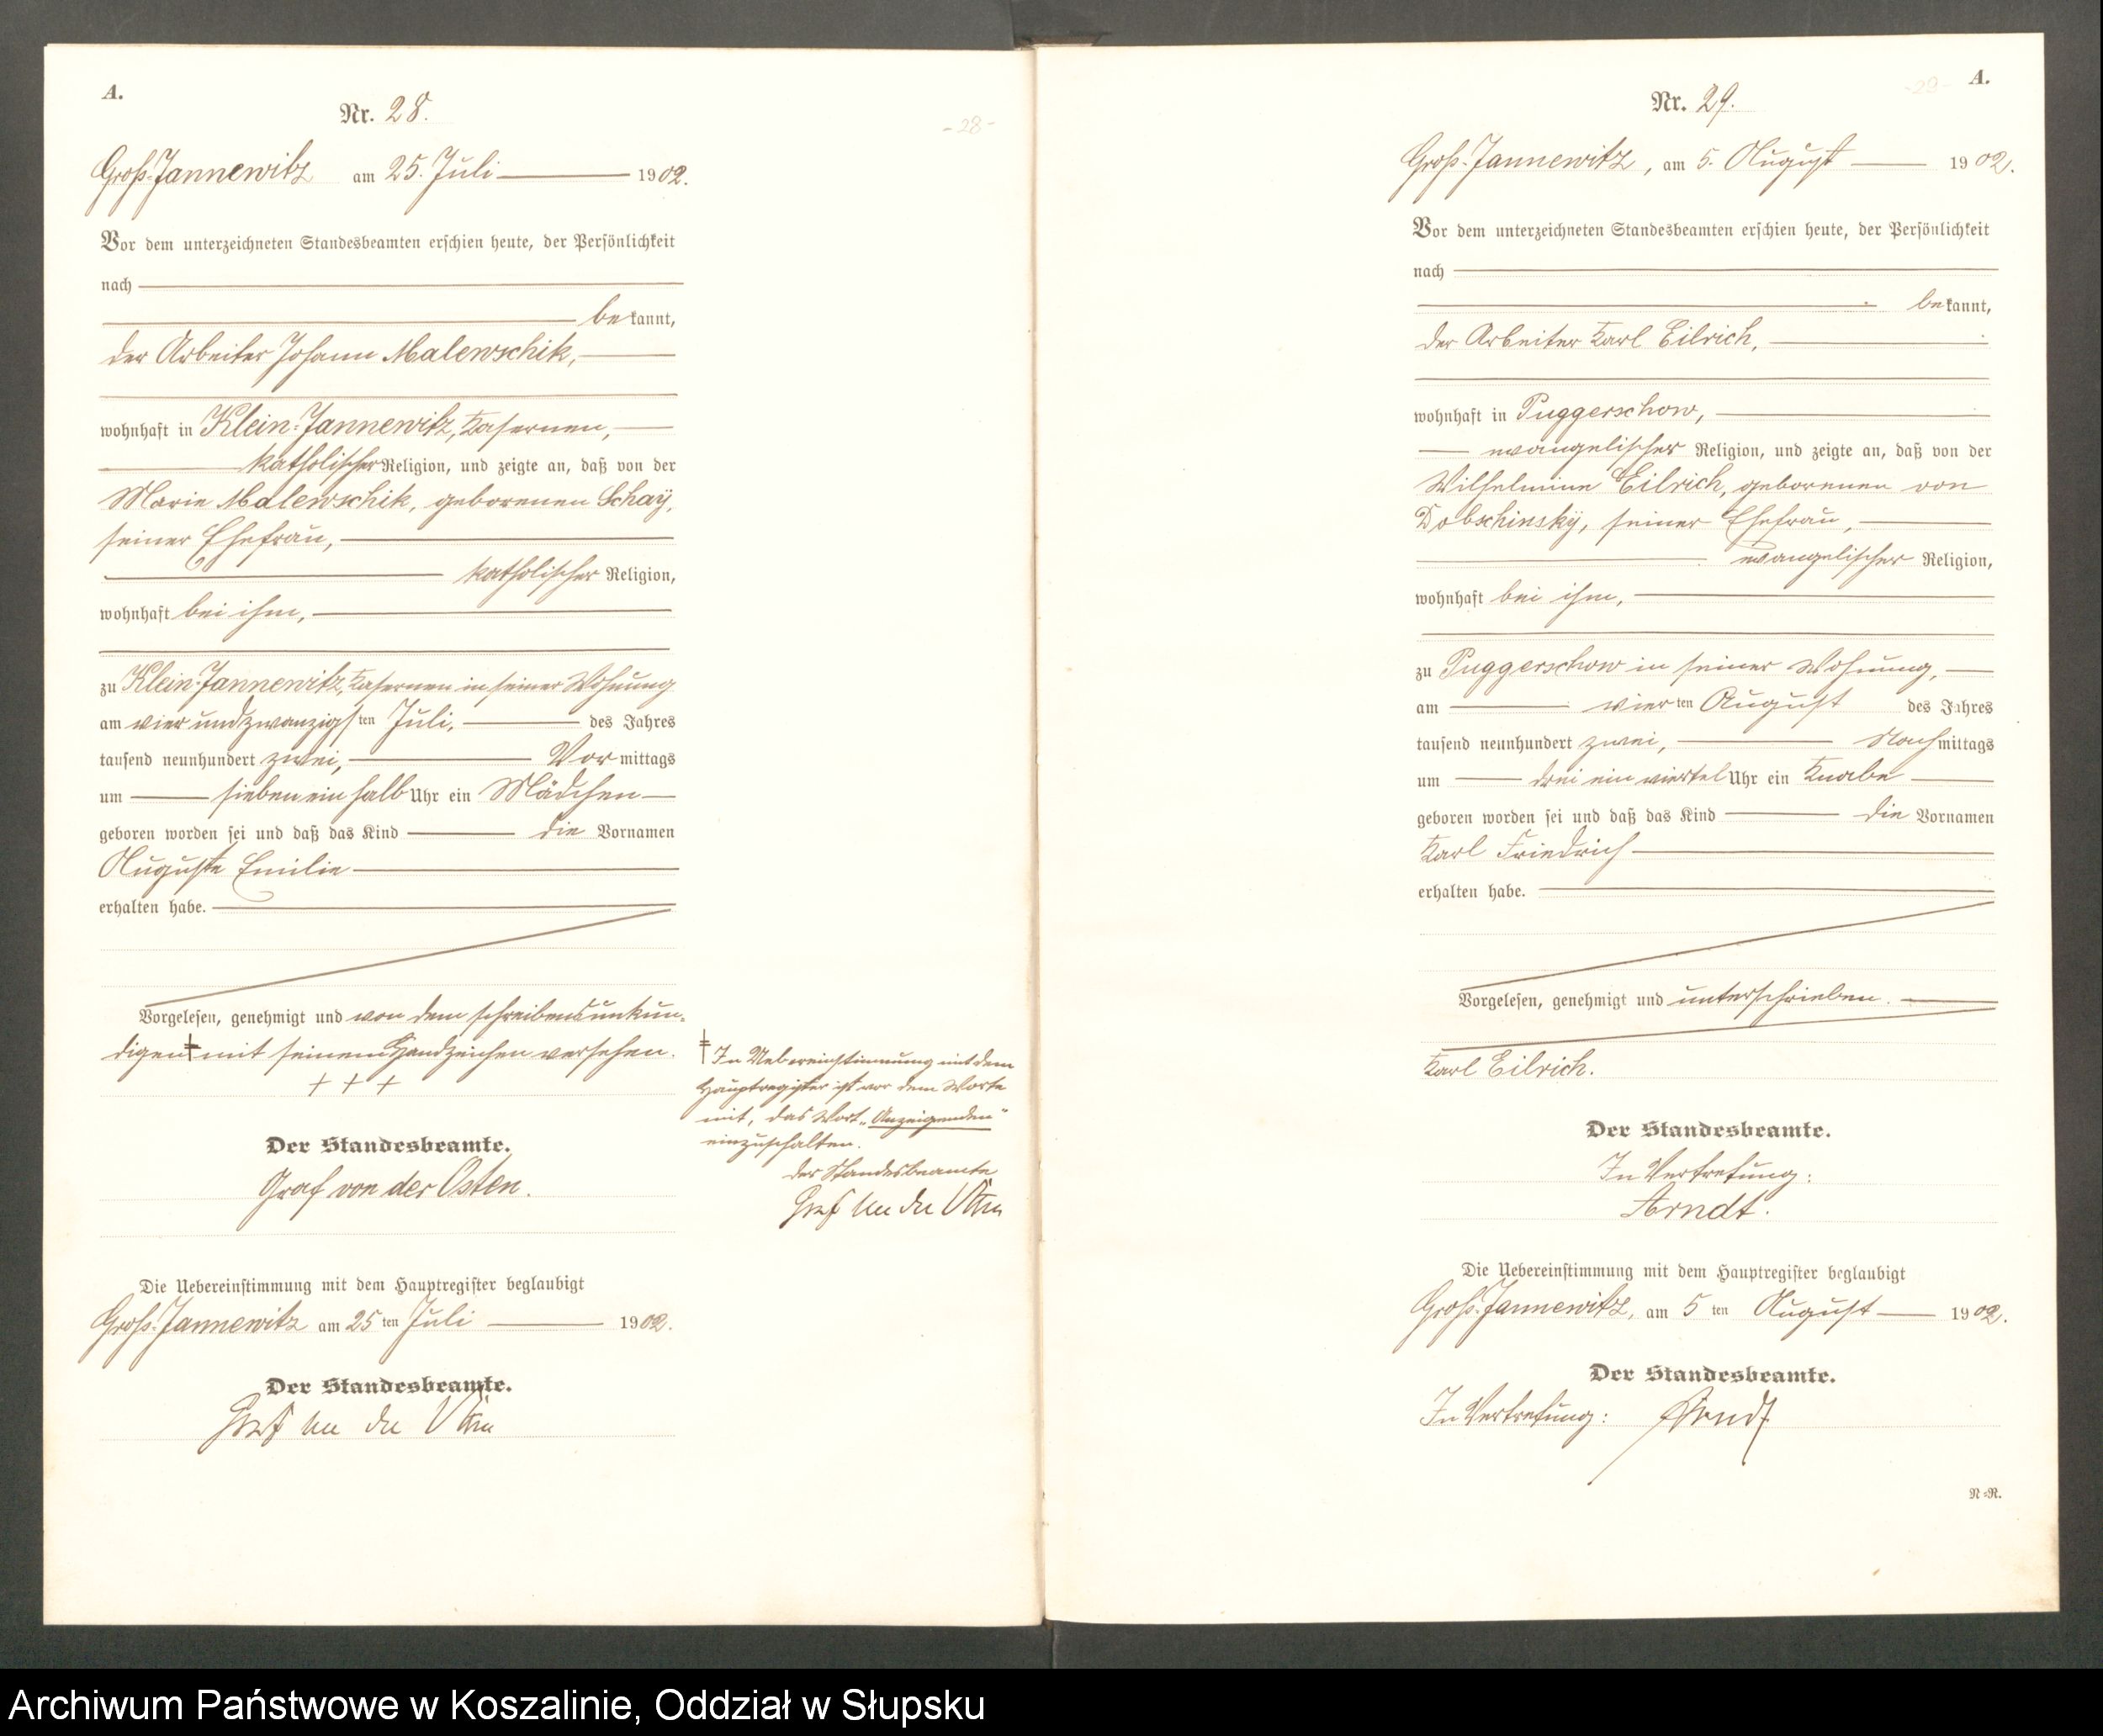 A.
Nr. 28.
-28-
Groß-Jannewitz am 25. Juli 1902.
Vor dem unterzeichneten Standesbeamten erschien heute, der Persönlichkeit
nach
bekannt,
der Arbeiter Johann Malewschik,
wohnhaft in Klein-Jannewitz, Kasernen,
katholischer Religion, und zeigte an, daß von der
Marie Malewschik, geborenen Schaÿ,
seiner Ehefrau,
katholischer Religion,
wohnhaft bei ihm,
zu Klein-Jannewitz, Kasernen in seiner Wohnung
am vier und zwanzigsten Juli, des Jahres
tausend neunhundert zwei, Vormittags
um sieben ein halb Uhr ein Mädchen
geboren worden sei und daß das Kind die Vornamen
Auguste Emilie
erhalten habe.
Vorgelesen, genehmigt und von dem schreibensunkun-
digen ǂ mit seinem Handzeichen versehen.
+ + +
Der Standesbeamte.
Graf von der Osten.
ǂ In Uebereinstimmung mit dem
Hauptregister ist vor dem Worte
mit, das Wort „Anzeigenden"
einzuschalten.
Der Standesbeamte
Graf von der Osten
Die Uebereinstimmung mit dem Hauptregister beglaubigt
Groß-Jannewitz am 25ten Juli 1902.
Der Standesbeamte.
Graf von der Osten
A.
-29-
Nr. 29.
Groß-Jannewitz, am 5. August 1902.
Vor dem unterzeichneten Standesbeamten erschien heute, der Persönlichkeit
nach
bekannt,
der Arbeiter Karl Eilrich,
wohnhaft in Puggerschow,
evangelischer Religion, und zeigte an, daß von der
Wilhelmine Eilrich, geborenen von
Dobschinskÿ, seiner Ehefrau,
evangelischer Religion,
wohnhaft bei ihm,
zu Puggerschow in seiner Wohnung,
am vierten August des Jahres
tausend neunhundert zwei, Nachmittags
um drei ein viertel Uhr ein Knabe
geboren worden sei und daß das Kind die Vornamen
Karl Friedrich
erhalten habe.
Vorgelesen, genehmigt und unterschrieben.
Karl Eilrich.
Der Standesbeamte.
In Vertretung:
Arndt.
Die Uebereinstimmung mit dem Hauptregister beglaubigt
Groß-Jannewitz, am 5ten August 1902.
Der Standesbeamte.
In Vertretung: Arndt
N=R.
Archiwum Państwowe w Koszalinie, Oddział w Słupsku